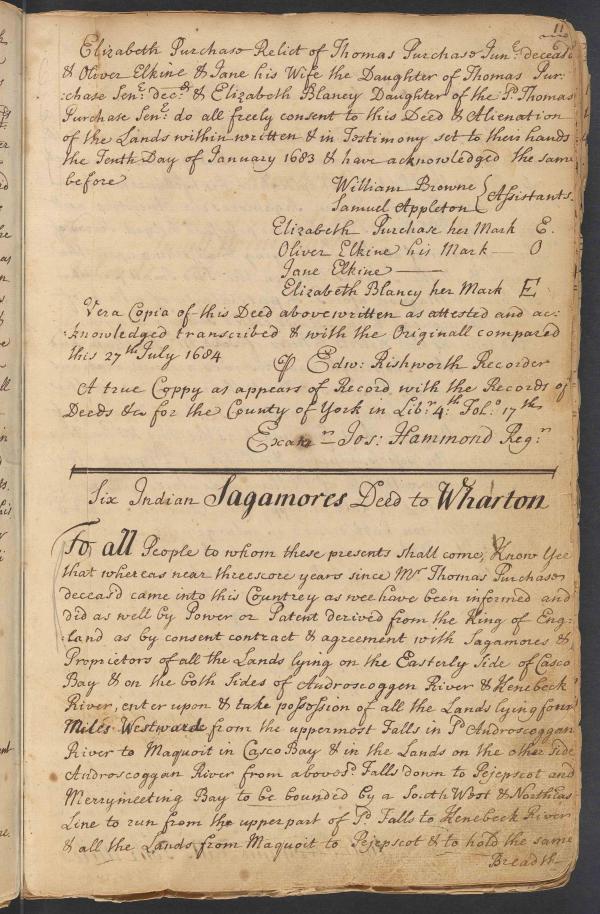 11
Elizabeth Purchase Relict of Thomas Purchase Junr. deceasd
& Oliver Elkine & Jane his Wife the Daughter of Thomas Pur:
:chase Senr. decd. & Elizabeth Blaney Daughter of the sd. Thomas
Purchase Senr. do all freely consent to this Deed & Alienation
of the Lands within written & in Testimony set to their hands
the Tenth Day of January 1683 & have acknowledged the same
before
William Browne
Samuel Appleton } Assistants.
Elizabeth Purchase her Mark E.
Oliver Elkine his Mark — O
Jane Elkine ——
Elizabeth Blaney her Mark E
Vera Copia of this Deed above written as attested and ac:
:knowledged transcribed & with the Originall compared
this 27th July 1684 Edw: Rishworth Recorder
A true Coppy as appears of Record with the Records of
Deeds &c for the County of York in Libr. 4th: Fol.o 17th
Examn. Jos: Hammond Regr.
Six Indian Sagamores Deed to Wharton
To all People to whom these presents shall come, Know Yee
that whereas near threescore years since Mr Thomas Purchase
deceas'd came into this Countrey as wee have been informed and
did as well by Power or Patent derived from the King of Eng:
:land as by consent contract & agreement with Sagamores &
Proprietors of all the Lands lying on the Easterly Side of Casco
Bay & on the both Sides of Androscoggen River & Kenebeck
River, enter upon & take possession of all the Lands lying four
Miles Westward from the uppermost Falls in sd Androscoggan
River to Maquoit in Casco Bay & in the Lands on the other Side
Androscoggan River from above sd. Falls down to Pejepscot and
Merrymeeting Bay to be bounded by a South West & North East
Line to run from the upper part of sd Falls to Kenebeck River
& all the Lands from Maquoit to Pejepscot & to hold the same
Breadth—